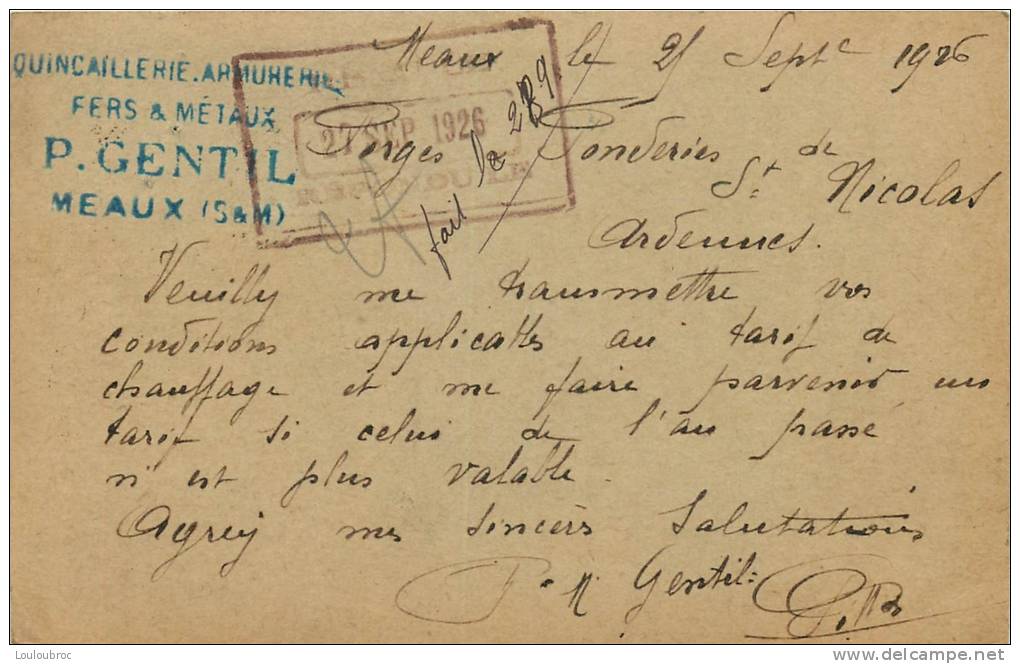 QUINCAILLERIE. ARMURERIE
FERS & MÉTAUX
P. GENTIL
MEAUX (S&M)
Meaux le 25 Septe 1926
27 SEP 1926
REPONDU LE
fait le 27/9
Forges Fonderies de
St Nicolas
Ardennes.
Veuilly me transmettre vos
conditions applicatts au tarif de
chauffage et me faire parvenir un
tarif si celui de l'an passé
n'est plus valable.
Agrey mes sincers Salutations
P. Gentil
Louloubroc
www.delcampe.net